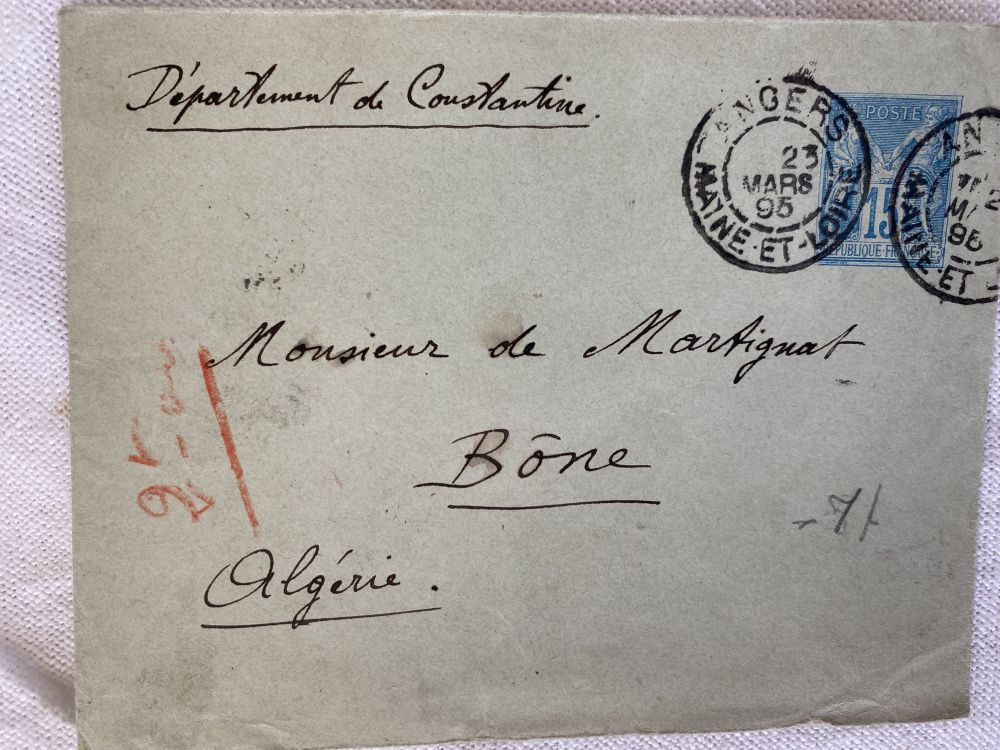 Département de Constantine.
ANGERS
23
MARS
95
MAINE-ET-LOIRE
POSTES
15
RÉPUBLIQUE FRANÇAISE
AN
MA
95
MAINE-ET
Monsieur de Martignat
Bône
Algérie.